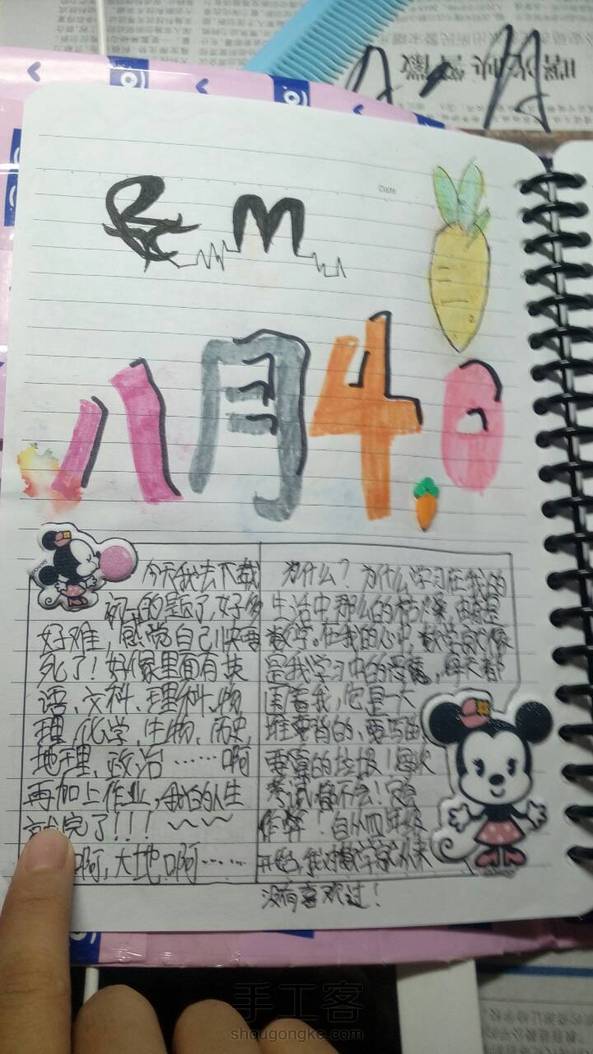 Date
八月4.6
今天我去下载
初一的题了,好多
好难,感觉自己快要
死了!好像里面有英
语、文科、理科、物
理、化学、生物、历史,
地理、政治……啊
再加上作业,我的人生
就完了!!!
啊,大地啊……
为什么?为什么学习在我的
生活中那么的枯燥,
数学。在我的心中,数学就像
是我学习中的恶魔,每天都
围着我,它是一大
堆要背的、要写的
要算的垃圾!每次
考试都不会!只会
作弊!自从四年级
开始,我对数学就从来
没有喜欢过!
手工客
shougongke.com